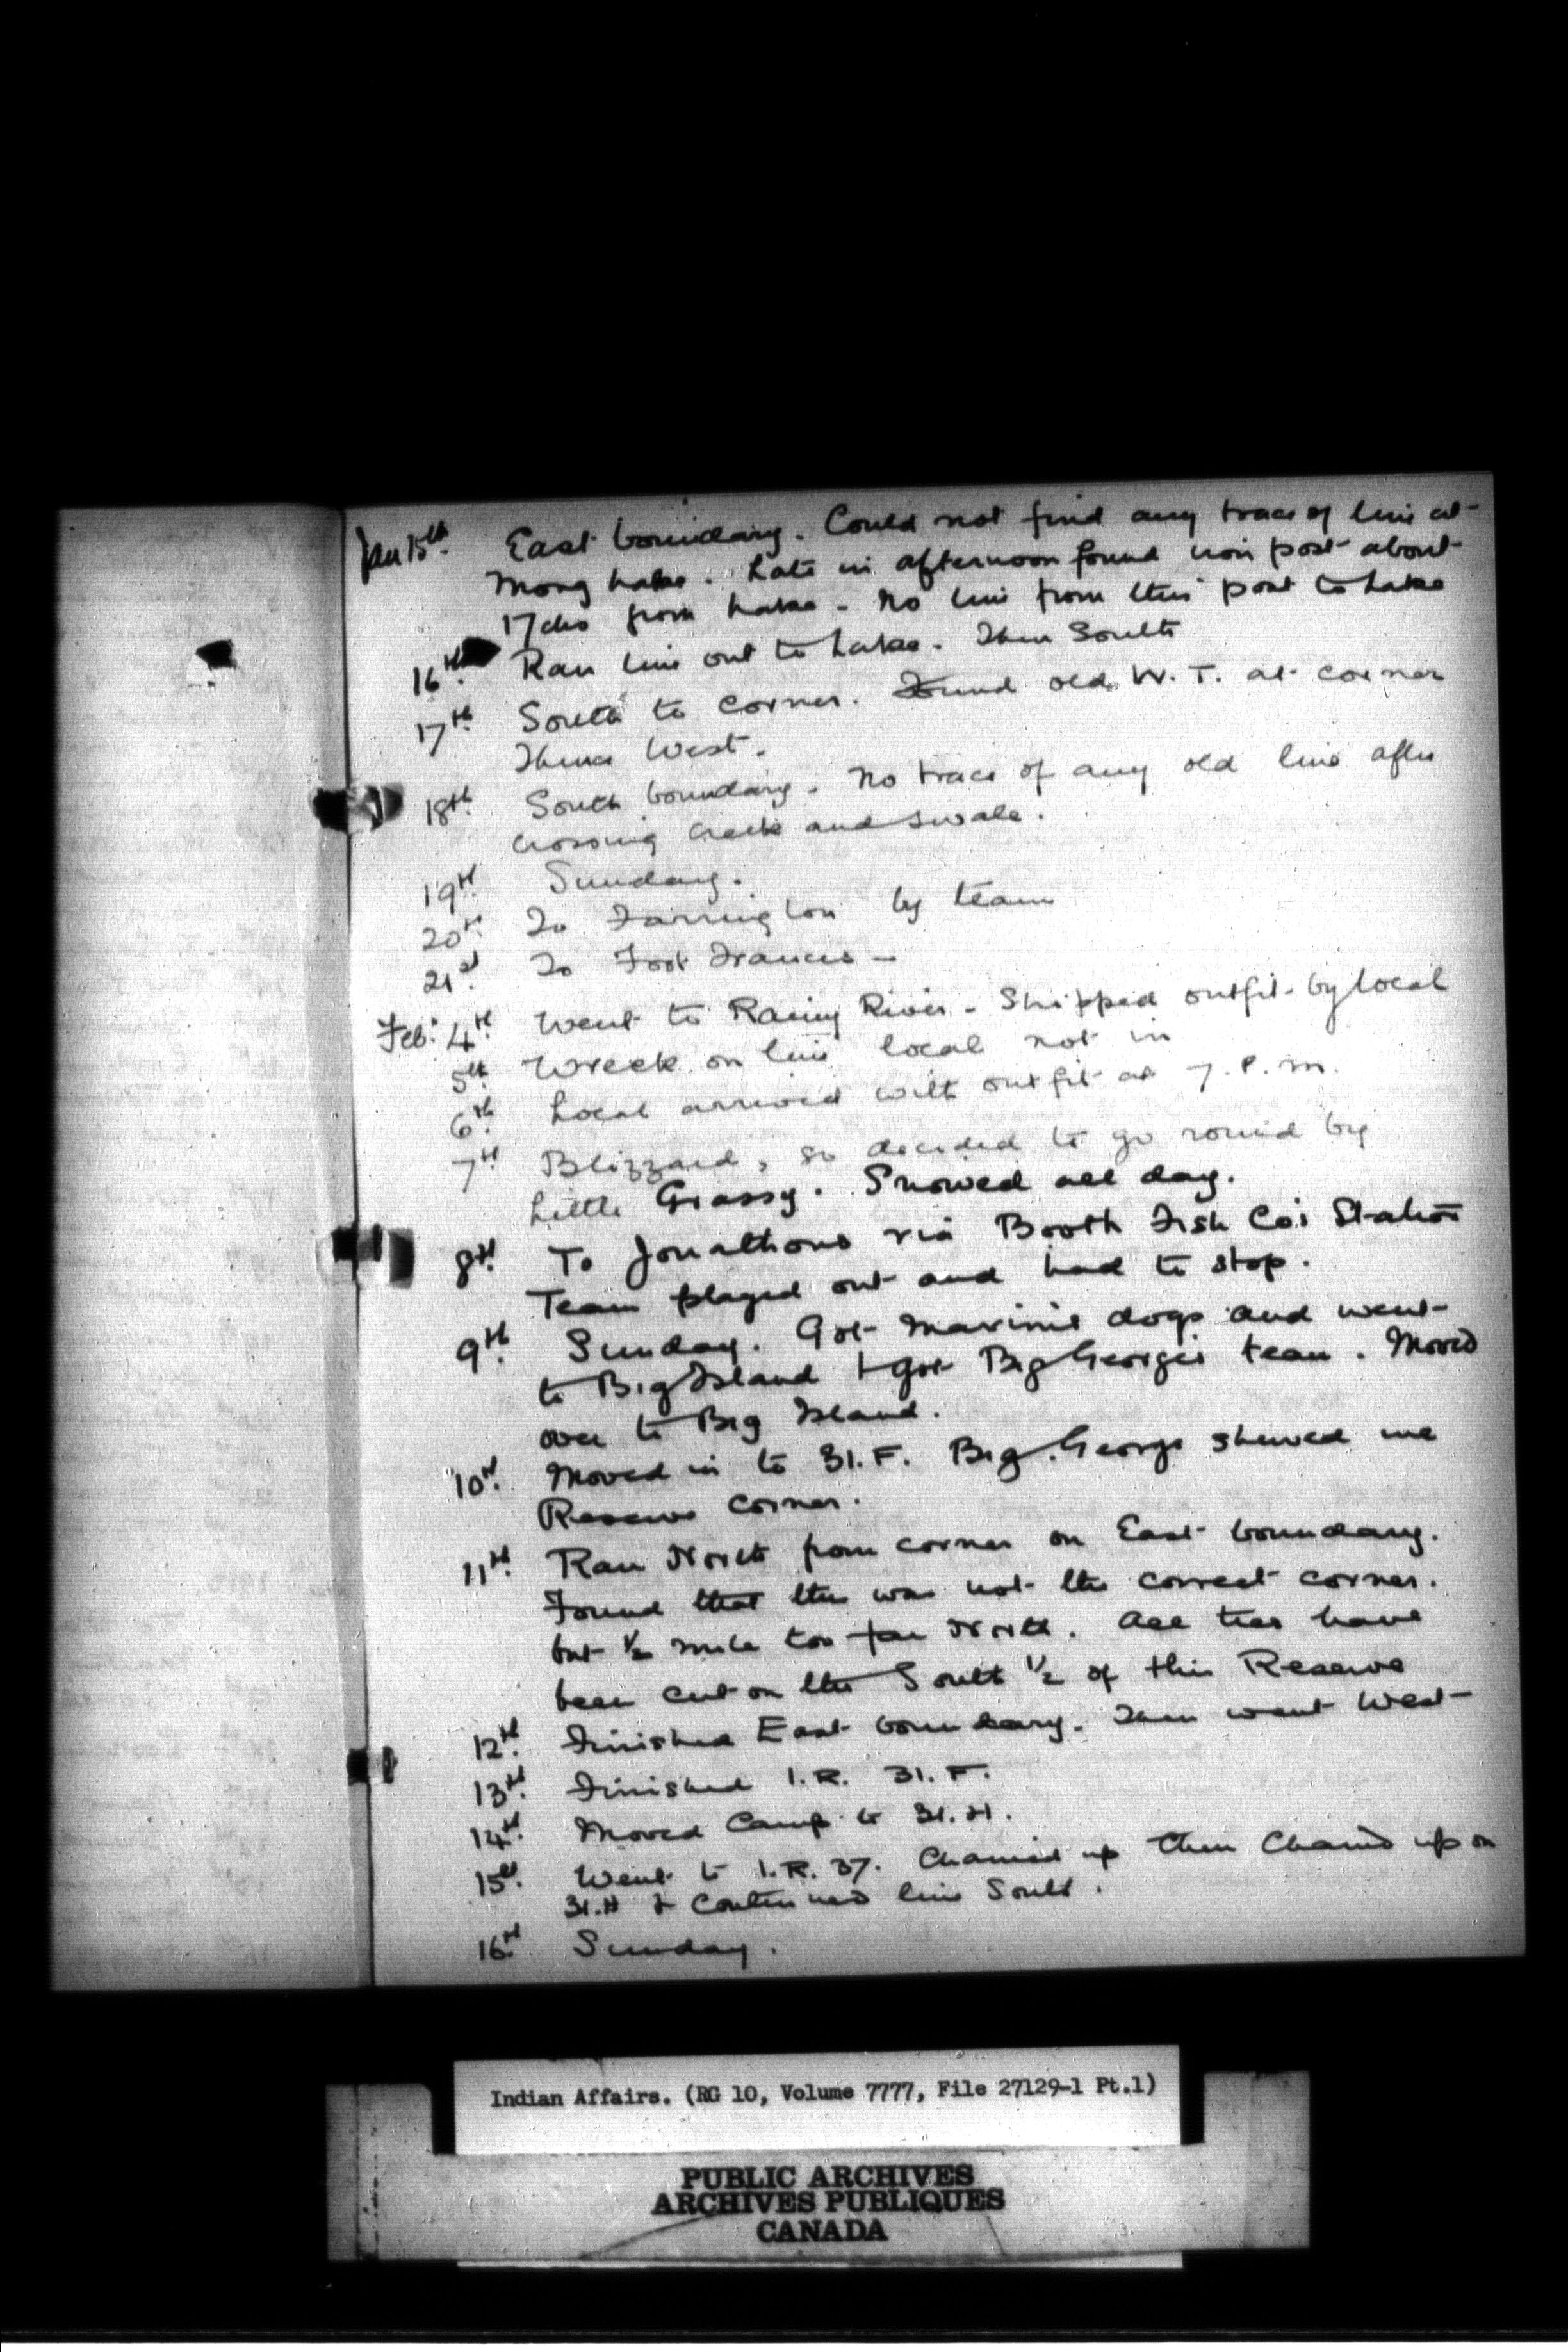 Jan 15th. East boundary. Could not find any trace of line at
Mong Lake. Late in afternoon found iron post about
17 chs from Lake - No line from this post to Lake
16th. Ran line out to Lake. Then South
17th. South to corner. Found old W. T. at corner
Thence West.
18th. South boundary. No trace of any old line after
crossing creek and swale.
19th. Sunday.
20th. To Farrington by team
21st. To Fort Frances -
Feb. 4th. Went to Rainy River - Shipped outfit by local
5th. Wreck on line local not in
6th. Local arrived with outfit at 7. P. M.
7th. Blizzard, so decided to go round by
Little Grassy. Snowed all day.
8th. To Jonathons via Booth Fish Co's Station
Team played out and had to stop.
9th. Sunday. Got dogs and went
to Big Island + got Big George's team. Moved
over to Big Island.
10th. Moved in to 31. F. Big George shewed me
Reserve corner.
11th. Ran North from corner on East boundary.
Found that this was not the correct corner.
but 1/2 mile too far North. All ties have
been cut on the South 1/2 of this Reserve
12th. Finished East boundary. Then went West
13th. Finished I. R. 31. F.
14th. Moved Camp to 31. H.
15th. Went to I. R. 37. Chained up then Chained up on
31. H & continued line South.
16th. Sunday.
Indian Affairs. (RG 10, Volume 7777, File 27129-1 Pt.1)
PUBLIC ARCHIVES
ARCHIVES PUBLIQUES
CANADA